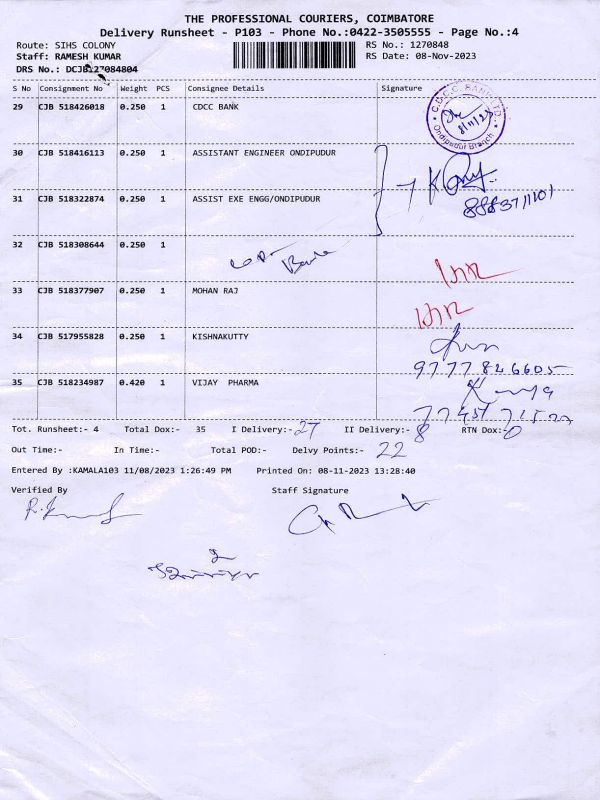 THE PROFESSIONAL COURIERS, COIMBATORE
Delivery Runsheet - P103 - Phone No.:0422-3505555 - Page No.:4
Route: SIHS COLONY RS No.: 1270848
Staff: RAMESH KUMAR RS Date: 08-Nov-2023
DRS No.: DCJB127084804
S No Consignment No Weight PCS Consignee Details Signature
29 CJB 518426018 0.250 1 CDCC BANK
C.D.C.C. BANK LTD.
8/11/23
Ondipudur Branch
30 CJB 518416113 0.250 1 ASSISTANT ENGINEER ONDIPUDUR
31 CJB 518322874 0.250 1 ASSIST EXE ENGG/ONDIPUDUR
32 CJB 518308644 0.250 1
33 CJB 518377907 0.250 1 MOHAN RAJ
34 CJB 517955828 0.250 1 KISHNAKUTTY
9777846605
35 CJB 518234987 0.420 1 VIJAY PHARMA
Tot. Runsheet:- 4 Total Dox:- 35 I Delivery:- 27 II Delivery:- 8 RTN Dox:- 0
Out Time:- In Time:- Total POD:- Delvy Points:- 22
Entered By :KAMALA103 11/08/2023 1:26:49 PM Printed On: 08-11-2023 13:28:40
Verified By Staff Signature